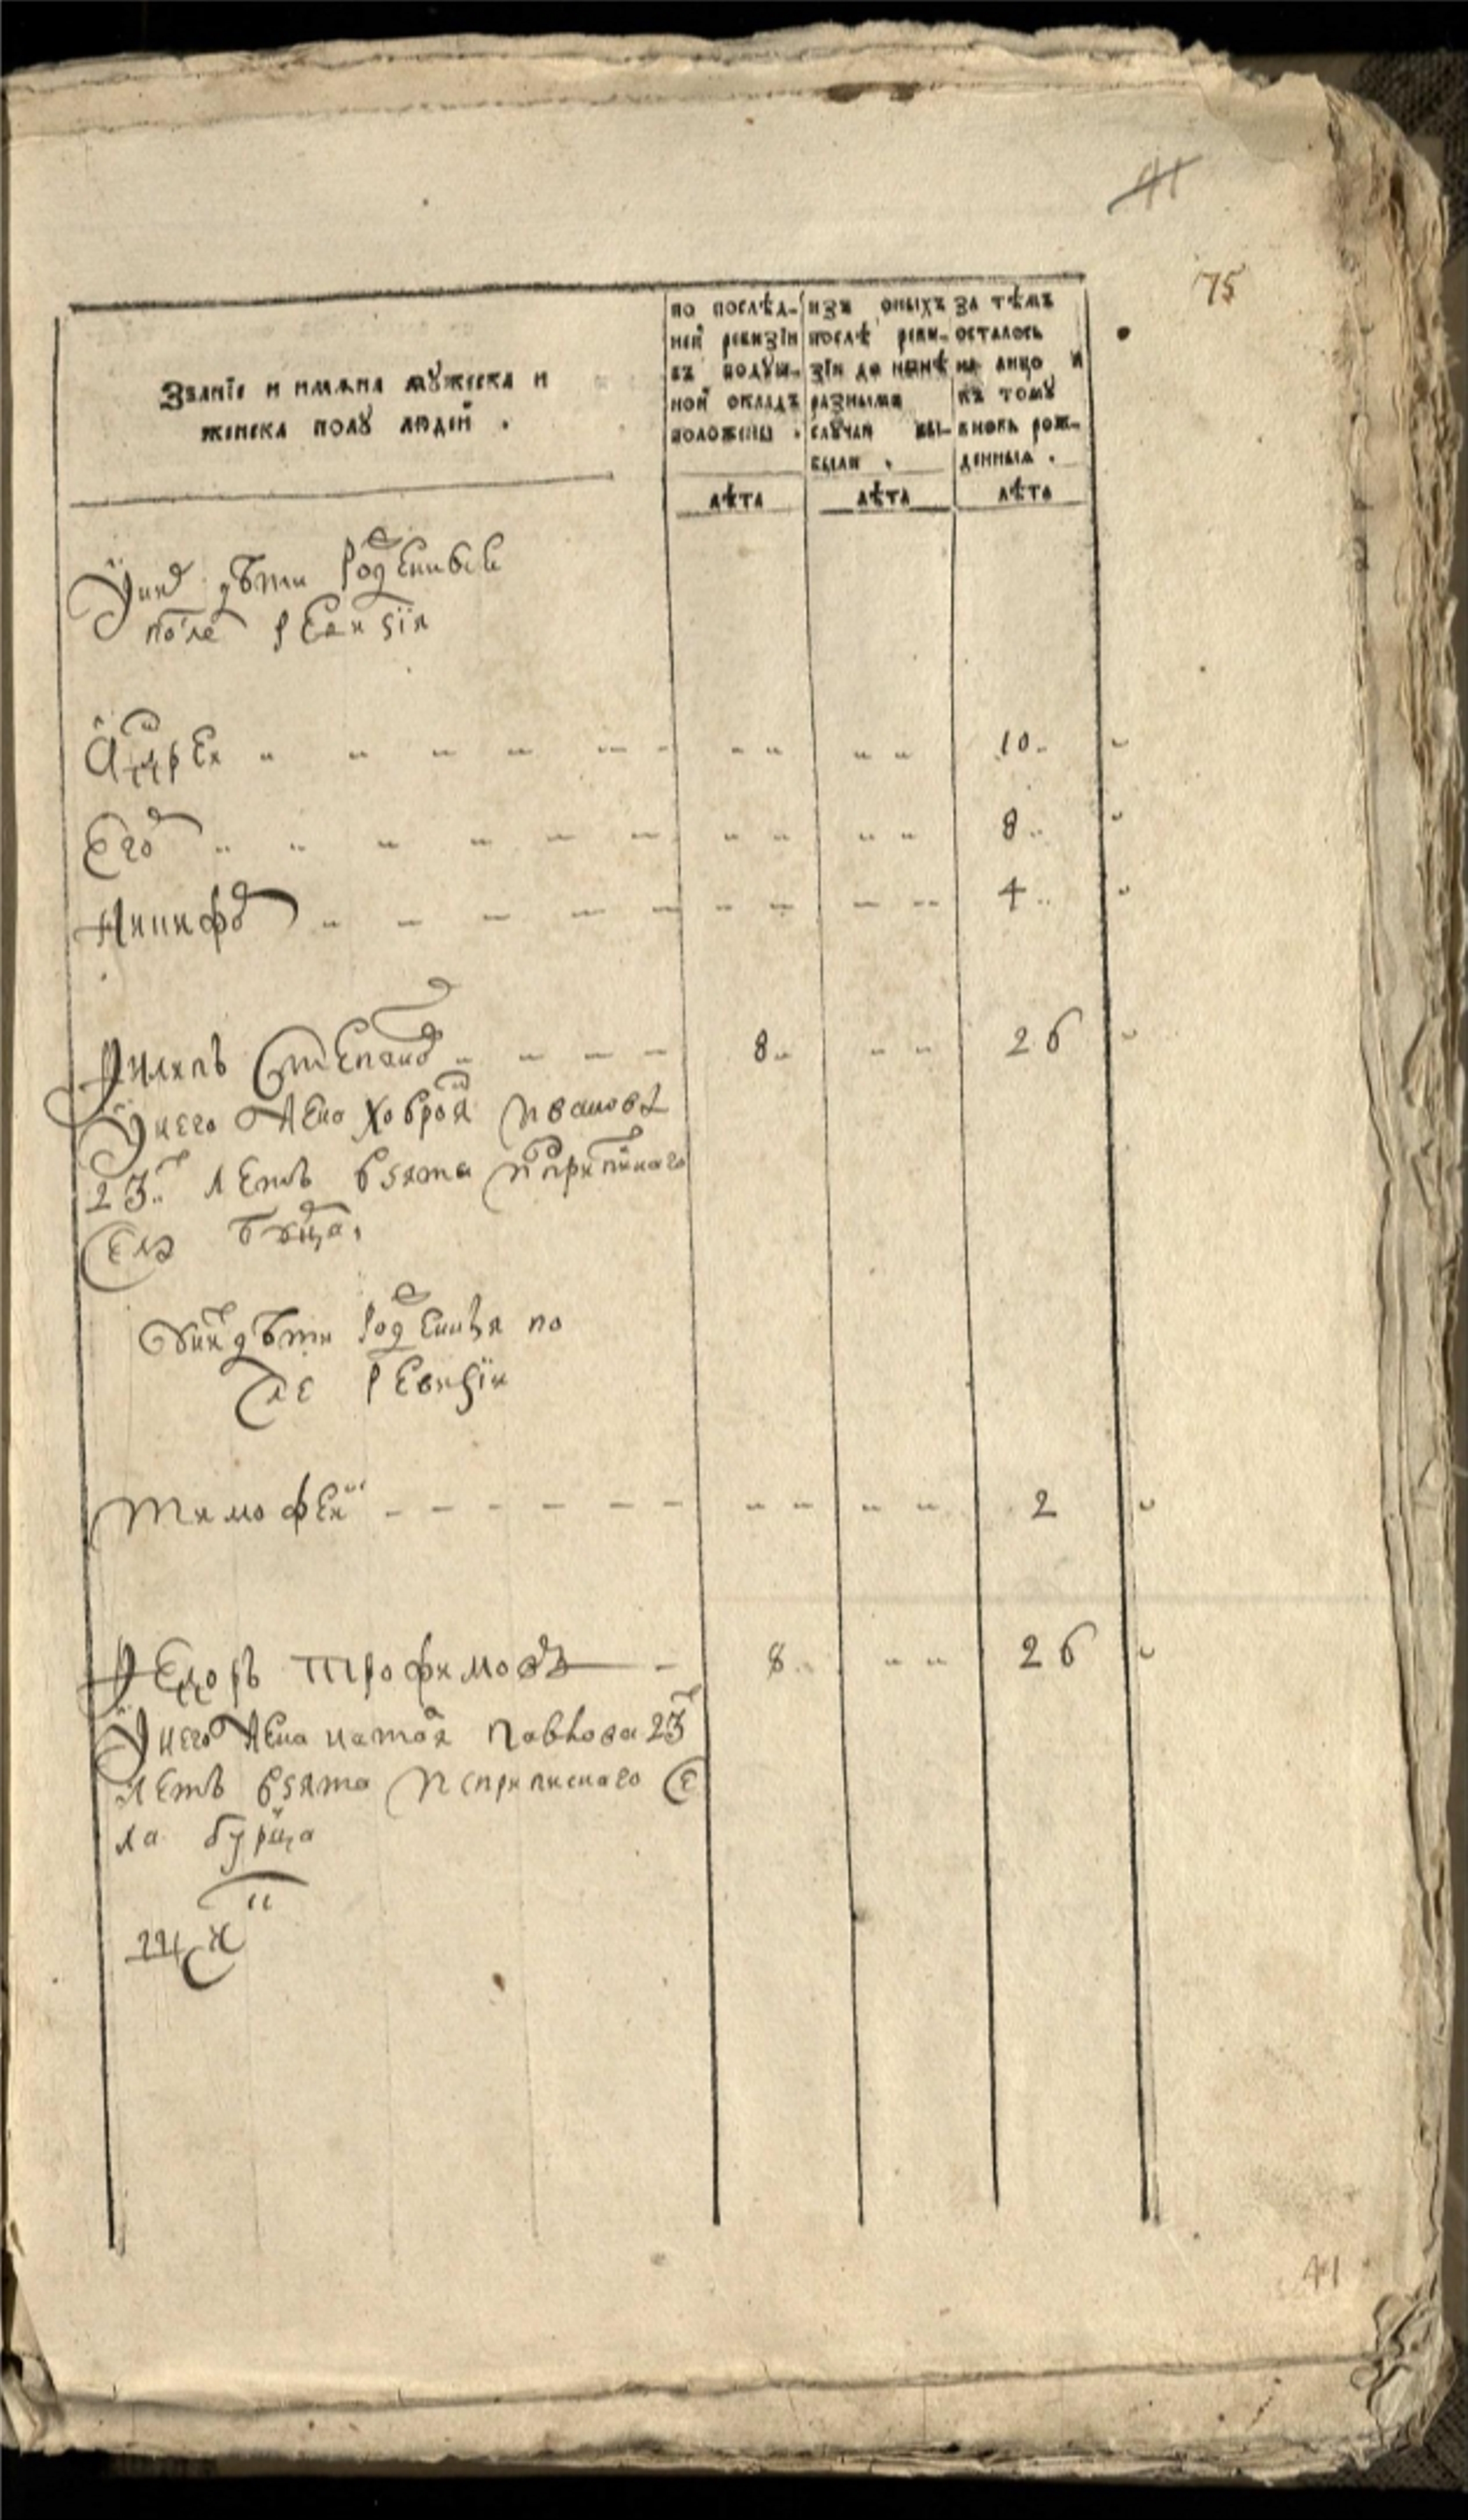 41
75
Званїе и имяна мꙋжеска и
женска полꙋ людей .
по послѣд-
ней ревизїи
въ подꙋш-
ной окладъ
положены .
лѣта
изъ оныхъ
послѣ реви-
зїи до нынѣ
разными
случаи вы-
были .
лѣта
за тѣмъ
осталось
на лицо и
къ томꙋ
вновь рож-
денныя .
лѣта
У них дѣти рожденныѣ
после ревизїи
Андреи 10
Егор 8
Никифор 4
Филипъ Степанов 8 26
У него жена Ховроя Иванова
23 летъ взята ис приписнаго
села
У них дѣти рожденныя по
сле ревизїи
Тимофеи 2
Федоръ Трофимовъ 8 26
У него жена Наталя Павлова 23
летъ взята ис приписнаго се
ла
41